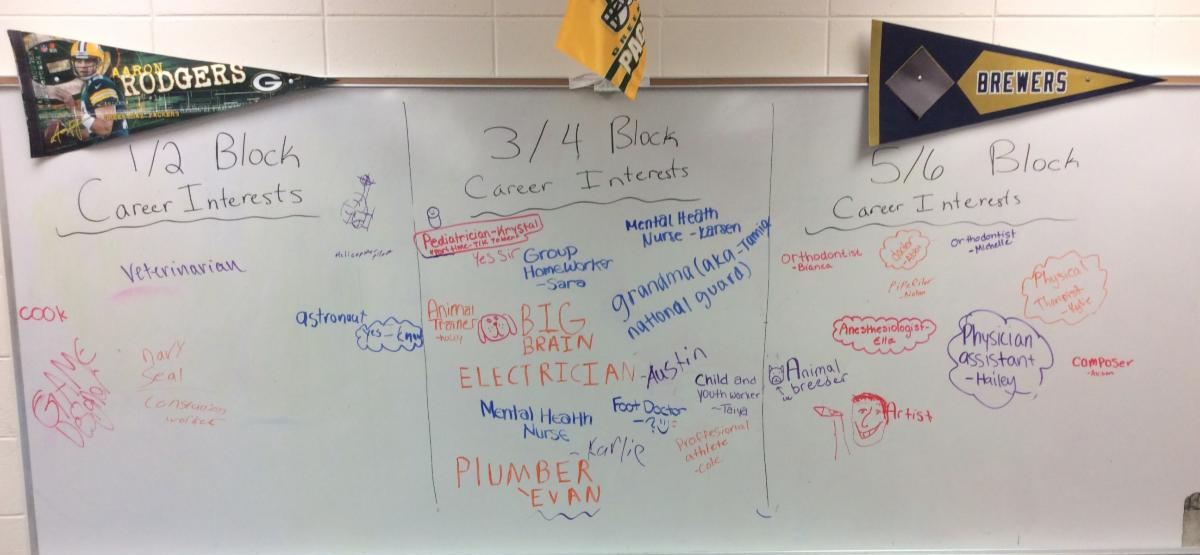 AARON
RODGERS
G
GREEN BAY PACKERS
PAC
BREWERS
1/2 Block
Career Interests
Veterinarian
cook
astronaut
GAME
Designer
navy
Seal
worker
3/4 Block
Career Interests
Pediatrician-Krystal
Yes Sir
Group
HomeWorker
-Sara
Mental Health
Nurse -Karsen
grandma (aka-Tamia
national guard)
Animal
Trainer
BIG
BRAIN
ELECTRICIAN -Austin
Child and
youth worker
-Taiya
Mental Health
Nurse
-Karlie
Foot Doctor
-?
Proffesional
athlete
-Cole
PlUMBER
EVAN
5/6 Block
Career Interests
Orthodontist
-Bianca
Orthodontist
-Michelle
Physical
-Kylie
Anesthesiologist-
Ella
Physician
assistant
-Hailey
composer
Animal
breeder
Artist